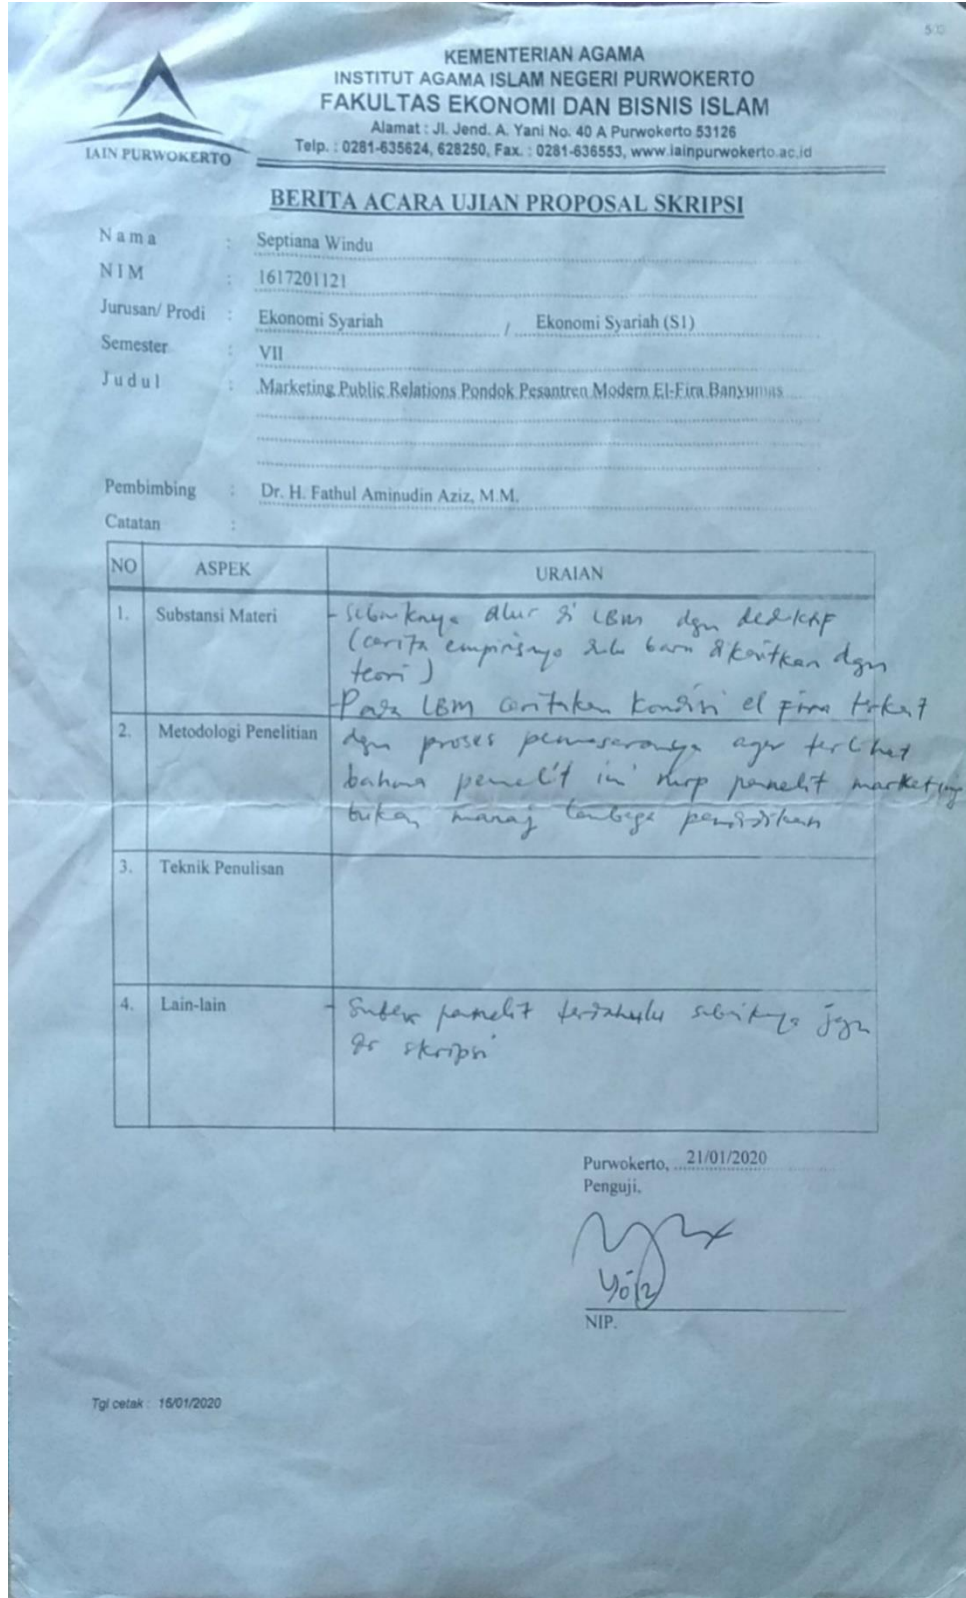 KEMENTERIAN AGAMA
INSTITUT AGAMA ISLAM NEGERI PURWOKERTO
FAKULTAS EKONOMI DAN BISNIS ISLAM
Alamat : Jl. Jend. A. Yani No. 40 A Purwokerto 53126
Telp. : 0281-635624, 628250, Fax. : 0281-636553, www.iainpurwokerto.ac.id
IAIN PURWOKERTO
BERITA ACARA UJIAN PROPOSAL SKRIPSI
Nama : Septiana Windu
NIM : 1617201121
Jurusan/ Prodi : Ekonomi Syariah / Ekonomi Syariah (S1)
Semester : VII
Judul : Marketing Public Relations Pondok Pesantren Modern El-Fira Banyumas
Pembimbing : Dr. H. Fathul Aminudin Aziz, M.M.
Catatan :
NO ASPEK URAIAN
1. Substansi Materi
- Sebaiknya alur di LBM dgn deduktif
(cerita empirisnya dulu baru dikaitkan dgn
teori)
- Pada LBM ceritakan kondisi el fira terkait
2. Metodologi Penelitian
dgn proses pemasarannya agar terlihat
bahwa penelit ini mrp penelit marketing
bukan manaj lembaga pendidikan
3. Teknik Penulisan
4. Lain-lain
- penelit terdahulu sebaiknya jgn
dr skripsi
Purwokerto, 21/01/2020
Penguji,
NIP.
Tgl cetak : 16/01/2020